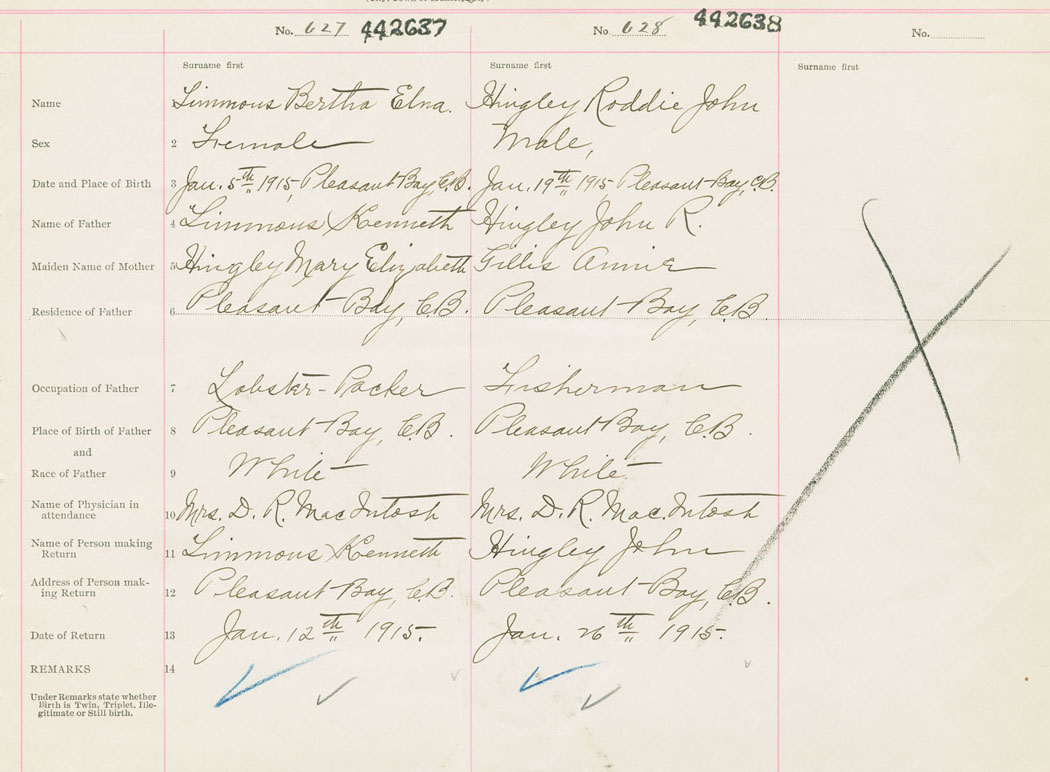 No. 627 442637
No. 628 442638
No.
Surname first
Surname first
Surname first
Name Timmons Bertha Elna. Hingley Roddie John
Sex 2 Female Male,
Date and Place of Birth 3 Jan. 5th 1915 Pleasant Bay, C.B. Jan. 19th 1915 Pleasant Bay, C.B.
Name of Father 4 Timmons Kenneth Hingley John R.
Maiden Name of Mother 5 Hingley Mary Elizabeth Gillis Annie
Residence of Father 6 Pleasant Bay, C.B. Pleasant Bay, C.B.
Occupation of Father 7 Lobster-Packer Fisherman
Place of Birth of Father 8 Pleasant Bay, C.B. Pleasant Bay, C.B.
and
Race of Father 9 White White
Name of Physician in
attendance 10 Mrs. D. R. MacIntosh Mrs. D. R. Mac.Intosh
Name of Person making
Return 11 Timmons Kenneth Hingley John
Address of Person mak-
ing Return 12 Pleasant Bay, C.B. Pleasant Bay, C.B.
Date of Return 13 Jan. 12th 1915. Jan. 26th 1915.
REMARKS 14
Under Remarks state whether
Birth is Twin, Triplet, Ille-
gitimate or Still birth.